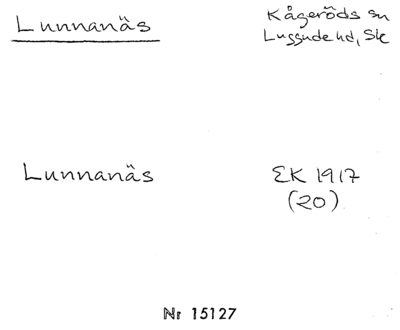 Lunnanäs
Kågeröds sn
Luggude hd, Sk
Lunnanäs
EK 1917
(20)
Nr 15127